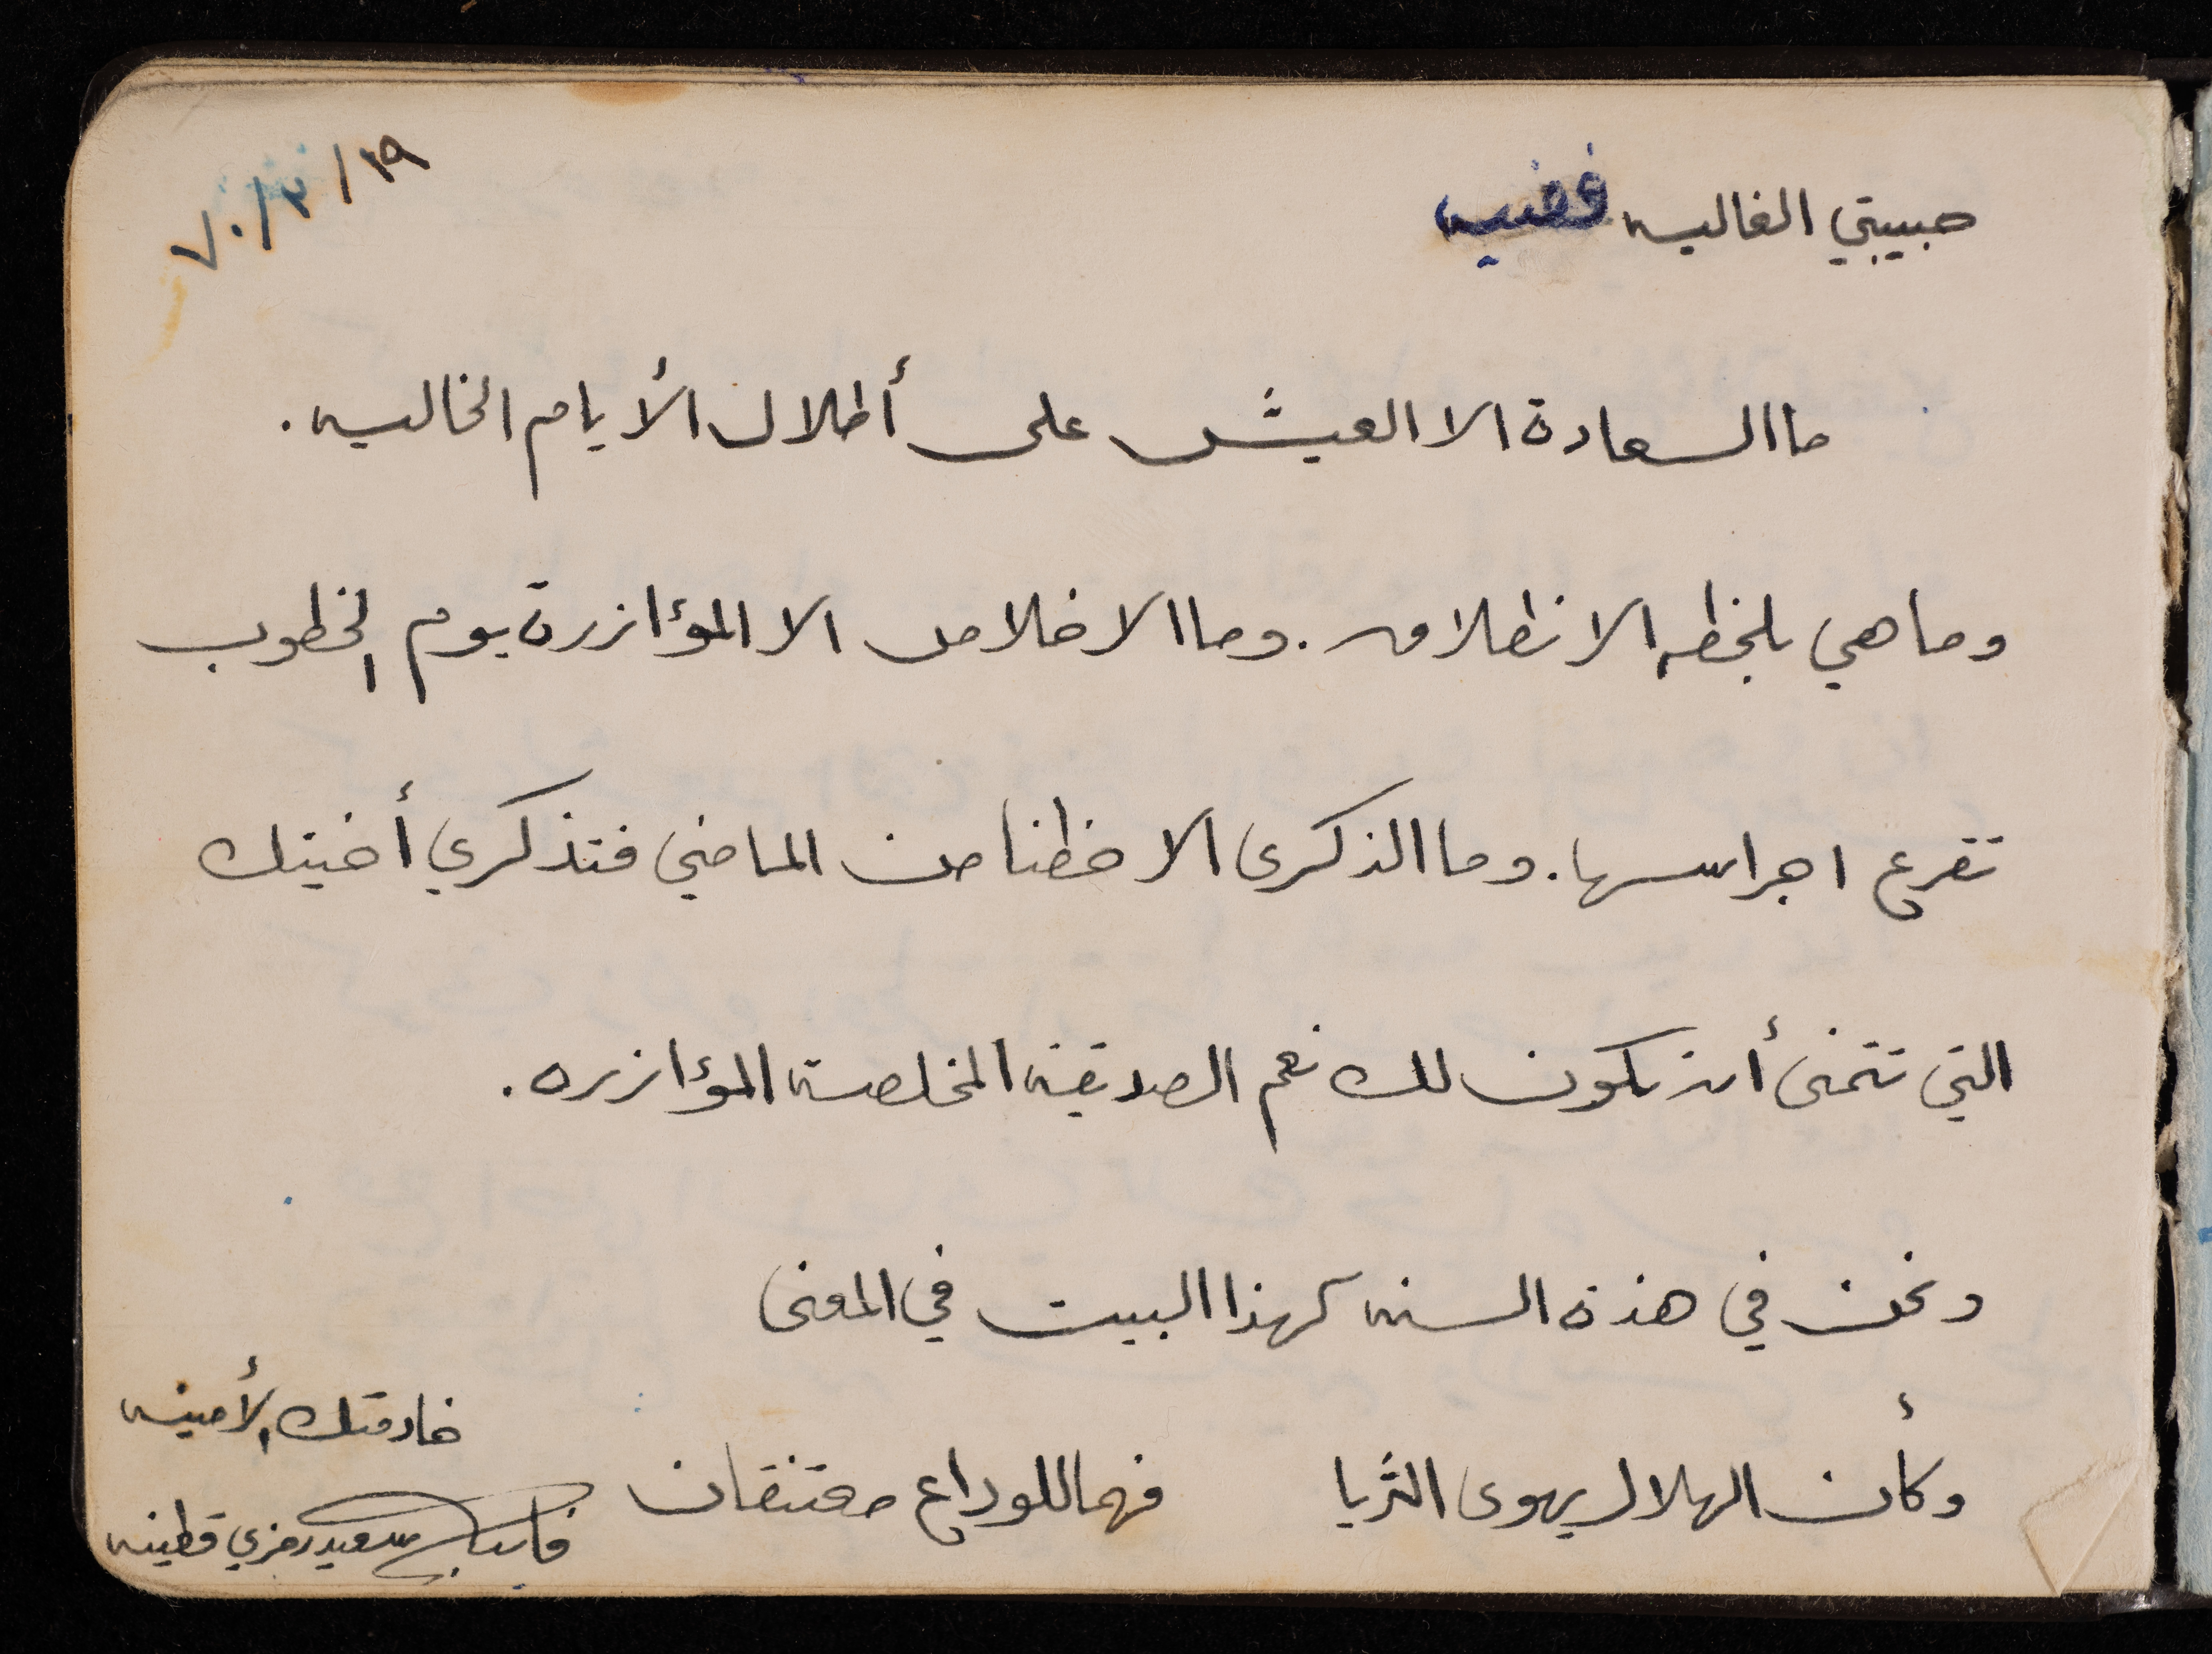 ١٩/٣/٧٠
حبيبتي الغاليه فضيه
ما السعادة الا العيش على أطلال الأيام الخاليه.
وما هي بلحظه الانطلاق. وما الاخلاص الا المؤازرة يوم الخطوب
تقرع اجراسها. وما الذكرى الا حظنا من الماضي فتذكري أختك
التي تتمنى أن تكون لك نعم الصديقه المخلصه المؤازره.
ونحن في هذة السنه كهذا البيت في المعنى
وكأن الهلال يهوى الثريا فهما للوداع معتنقان
خادمتك الأمينه
سعيد رمزي قطينه